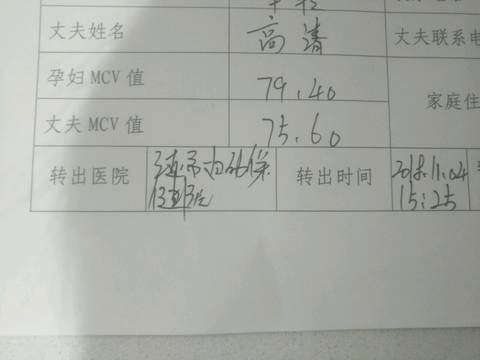 丈夫姓名 高清 丈夫联系电
孕妇 MCV 值 79.40
家庭住
丈夫 MCV 值 75.60
转出医院 转出时间 2018.11.04
15:25